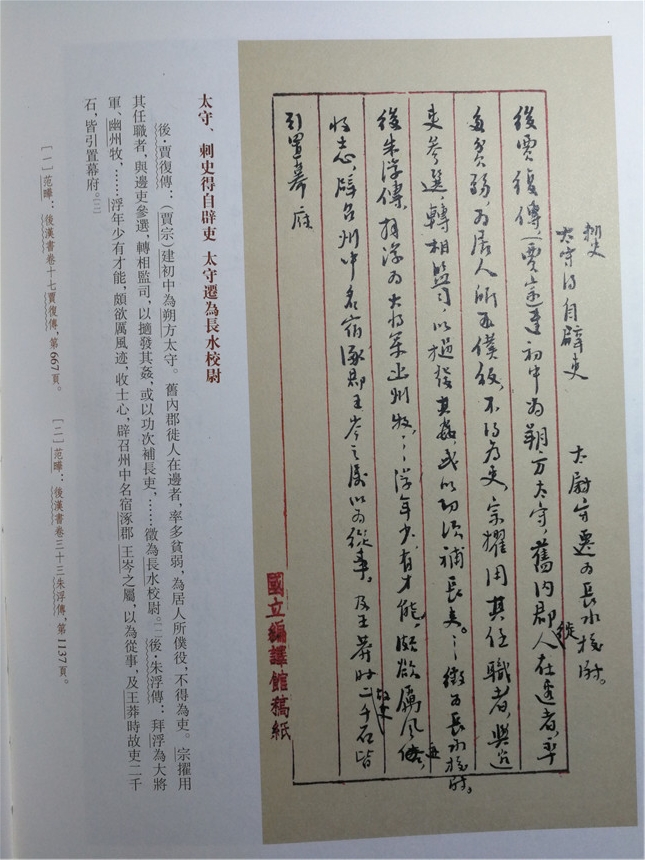 刺史
太守得自辟吏 太尉守遷为長水校尉。
後賈復傳,(賈宗建初中为朔方太守,舊內郡徙人在邊者,率
多貧弱,为居人所僕役,不得为吏,宗擢用其任職者,與边
吏參選,轉相監司,以擿發其姦,或以功次補長吏。…徵为長水校尉。
後朱浮傳,拜浮为大将军幽州牧,…浮年少有才能,頗欲厲風迹,
收士心,辟召州中名宿涿郡王岑之属以为從事。及王莽时故吏二千石皆
引置幕府
國立編譯館稿紙
太守、刺史得自辟吏 太守遷為長水校尉
後·賈復傳:(賈宗)建初中為朔方太守。舊內郡徙人在邊者,率多貧弱,為居人所僕役,不得為吏。宗擢用
其任職者,與邊吏參選,轉相監司,以擿發其姦,或以功次補長吏,……徵為長水校尉。[一]後·朱浮傳:拜浮為大將
軍、幽州牧,……浮年少有才能,頗欲厲風迹,收士心,辟召州中名宿涿郡王岑之屬,以為從事,及王莽時故吏二千
石,皆引置幕府。[二]
[一]范曄:後漢書卷十七賈復傳,第667頁。 [二]范曄:後漢書卷三十三朱浮傳,第1137頁。